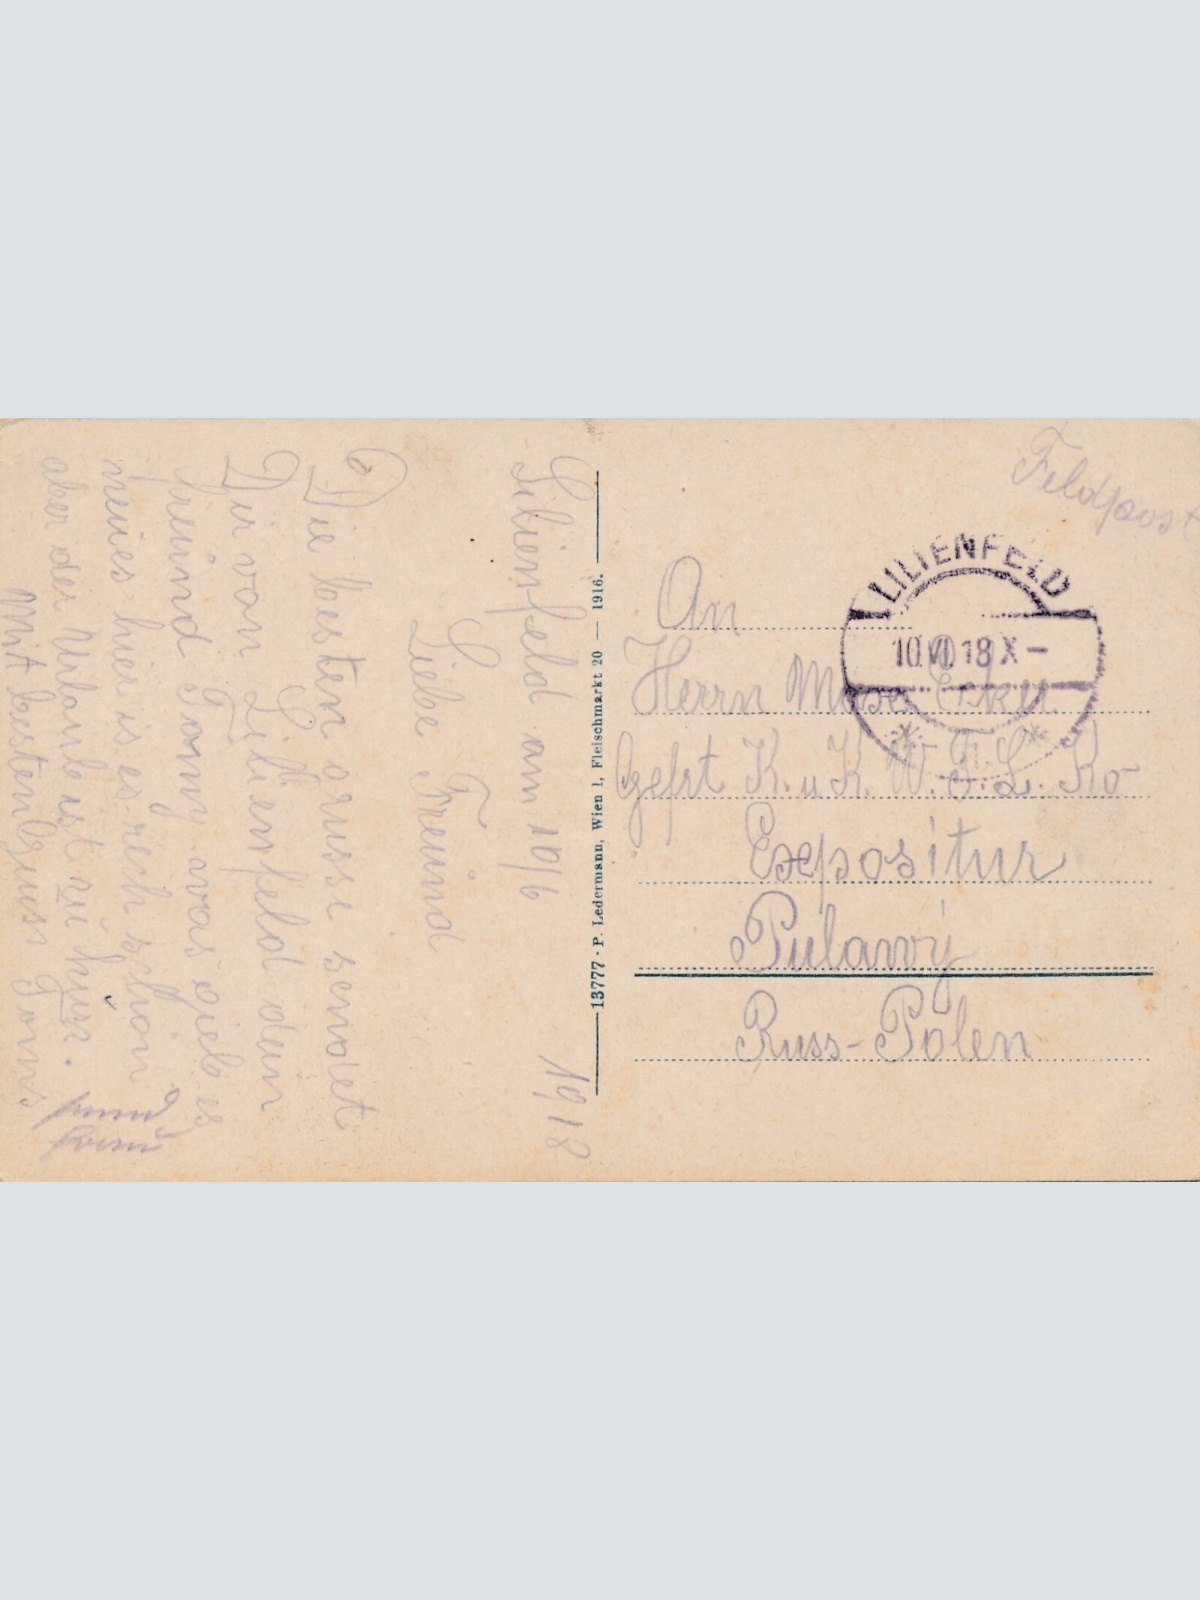 Lilienfeld am 10/6 1918
Liebe Freund
Die besten grusse sendet
Dir von Lilienfeld dein
freund Tony was gieb es
neues hier is es rech schön
aber der Urlaub ist zu kurz.
Mit besten Gruss Tony
13777 - P. Ledermann, Wien I, Fleischmarkt 20 — 1916.
Feldpost
LILIENFELD
10.VI.18 X -
An
Herrn
Gefrt K.u.K. W.F.L. Ko
Expositur
Pulawy
Russ-Polen